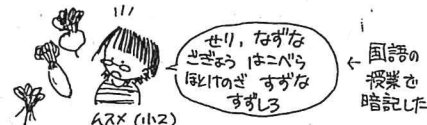 せり、なずな
ごぎょう はこべら
ほとけのざ すずな
すずしろ
← 国語の
授業で
暗記した
ムスメ(小2)